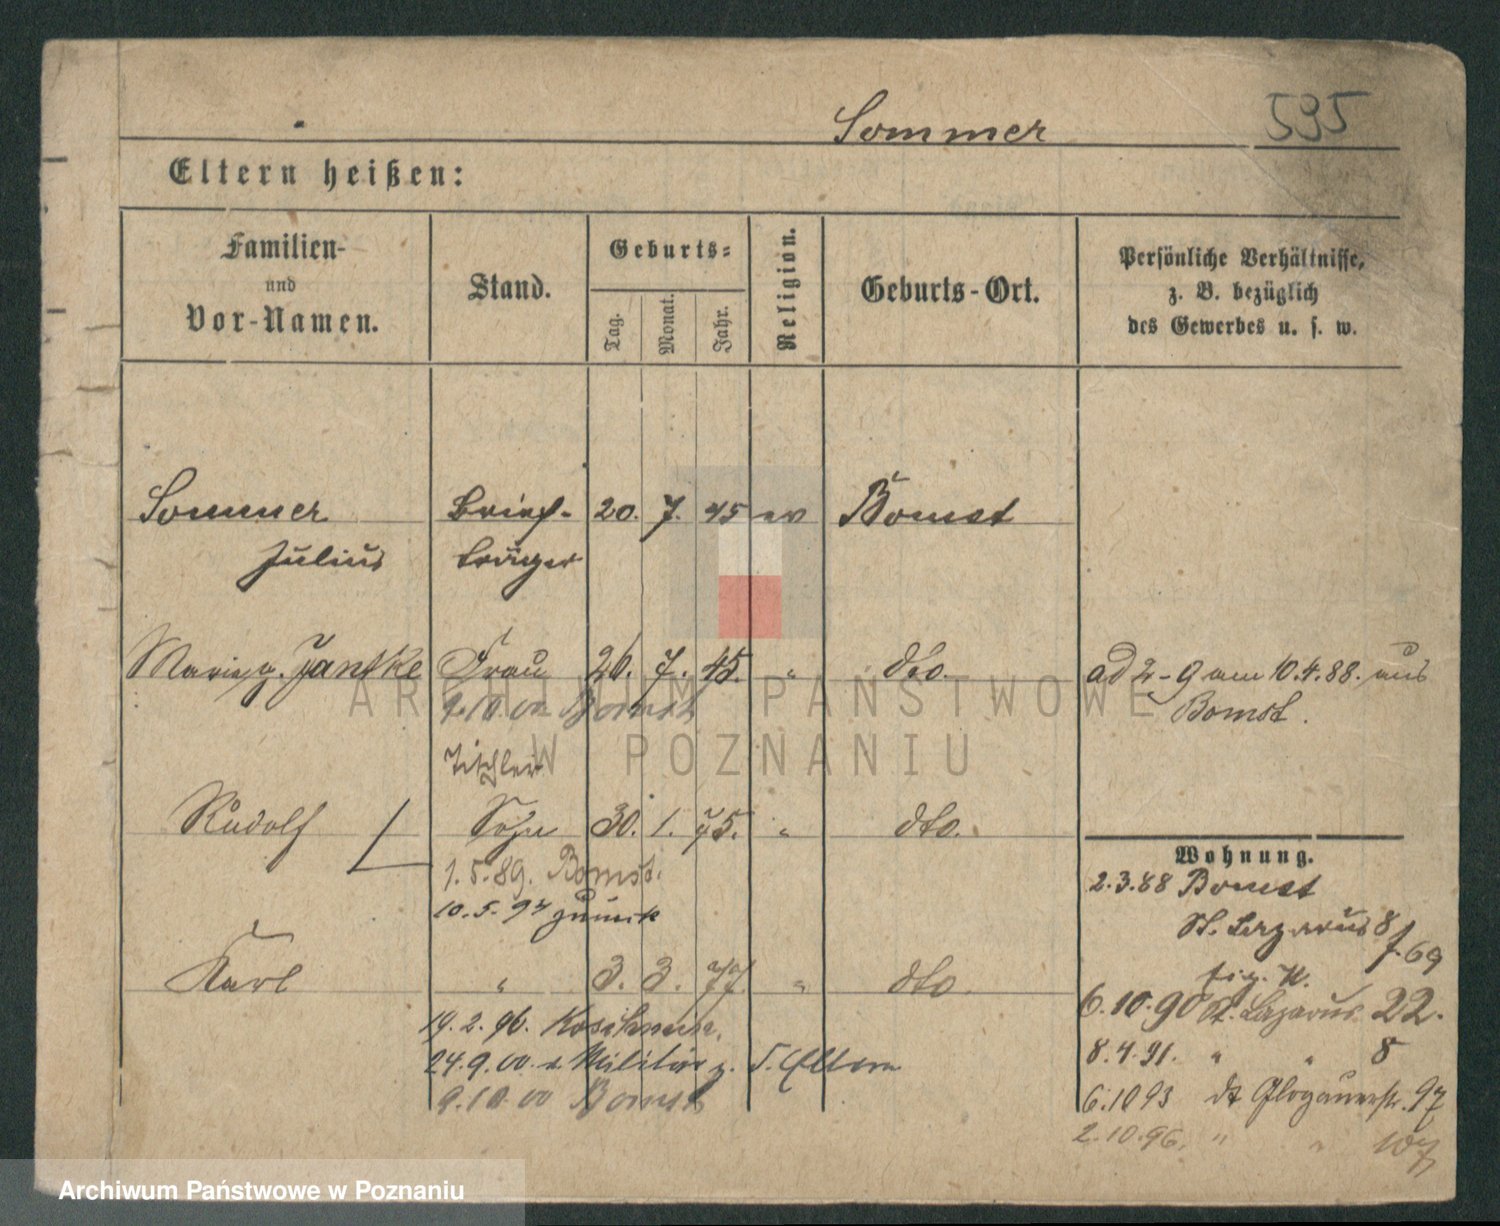 Sommer 595
Eltern heißen:
Familien-
und
Vor-Namen.
Stand.
Geburts-
Tag.
Monat.
Jahr.
Religion.
Geburts-Ort.
Persönliche Verhältnisse,
z. B. bezüglich
des Gewerbes u. s. w.
Sommer Brief- 20. 7. 45 ev Bomst
Julius träger
Marie g. Jantke Frau 26. 7. 45. " dto. ad 2-9 am 10.4.88. aus
9.10.00 Bomst Bomst.
Tischler
Rudolf Sohn 30. 1. 75. " dto.
1.5.89. Bomst.
10.5.97 zurück
Karl " 3. 3. 77 " dto.
19.2.96.
24.9.00 v. Militär z. d. Eltern
9.10.00 Bomst
Wohnung.
2.3.88 Bomst
St. Lazarus 8
f. 69
6.10.90 St. Lazarus 22.
8.4.91. " " 8
6.10 93 Glogauerstr. 97
2.10.96. " " 107
ARCHIWUM PAŃSTWOWE
W POZNANIU
Archiwum Państwowe w Poznaniu